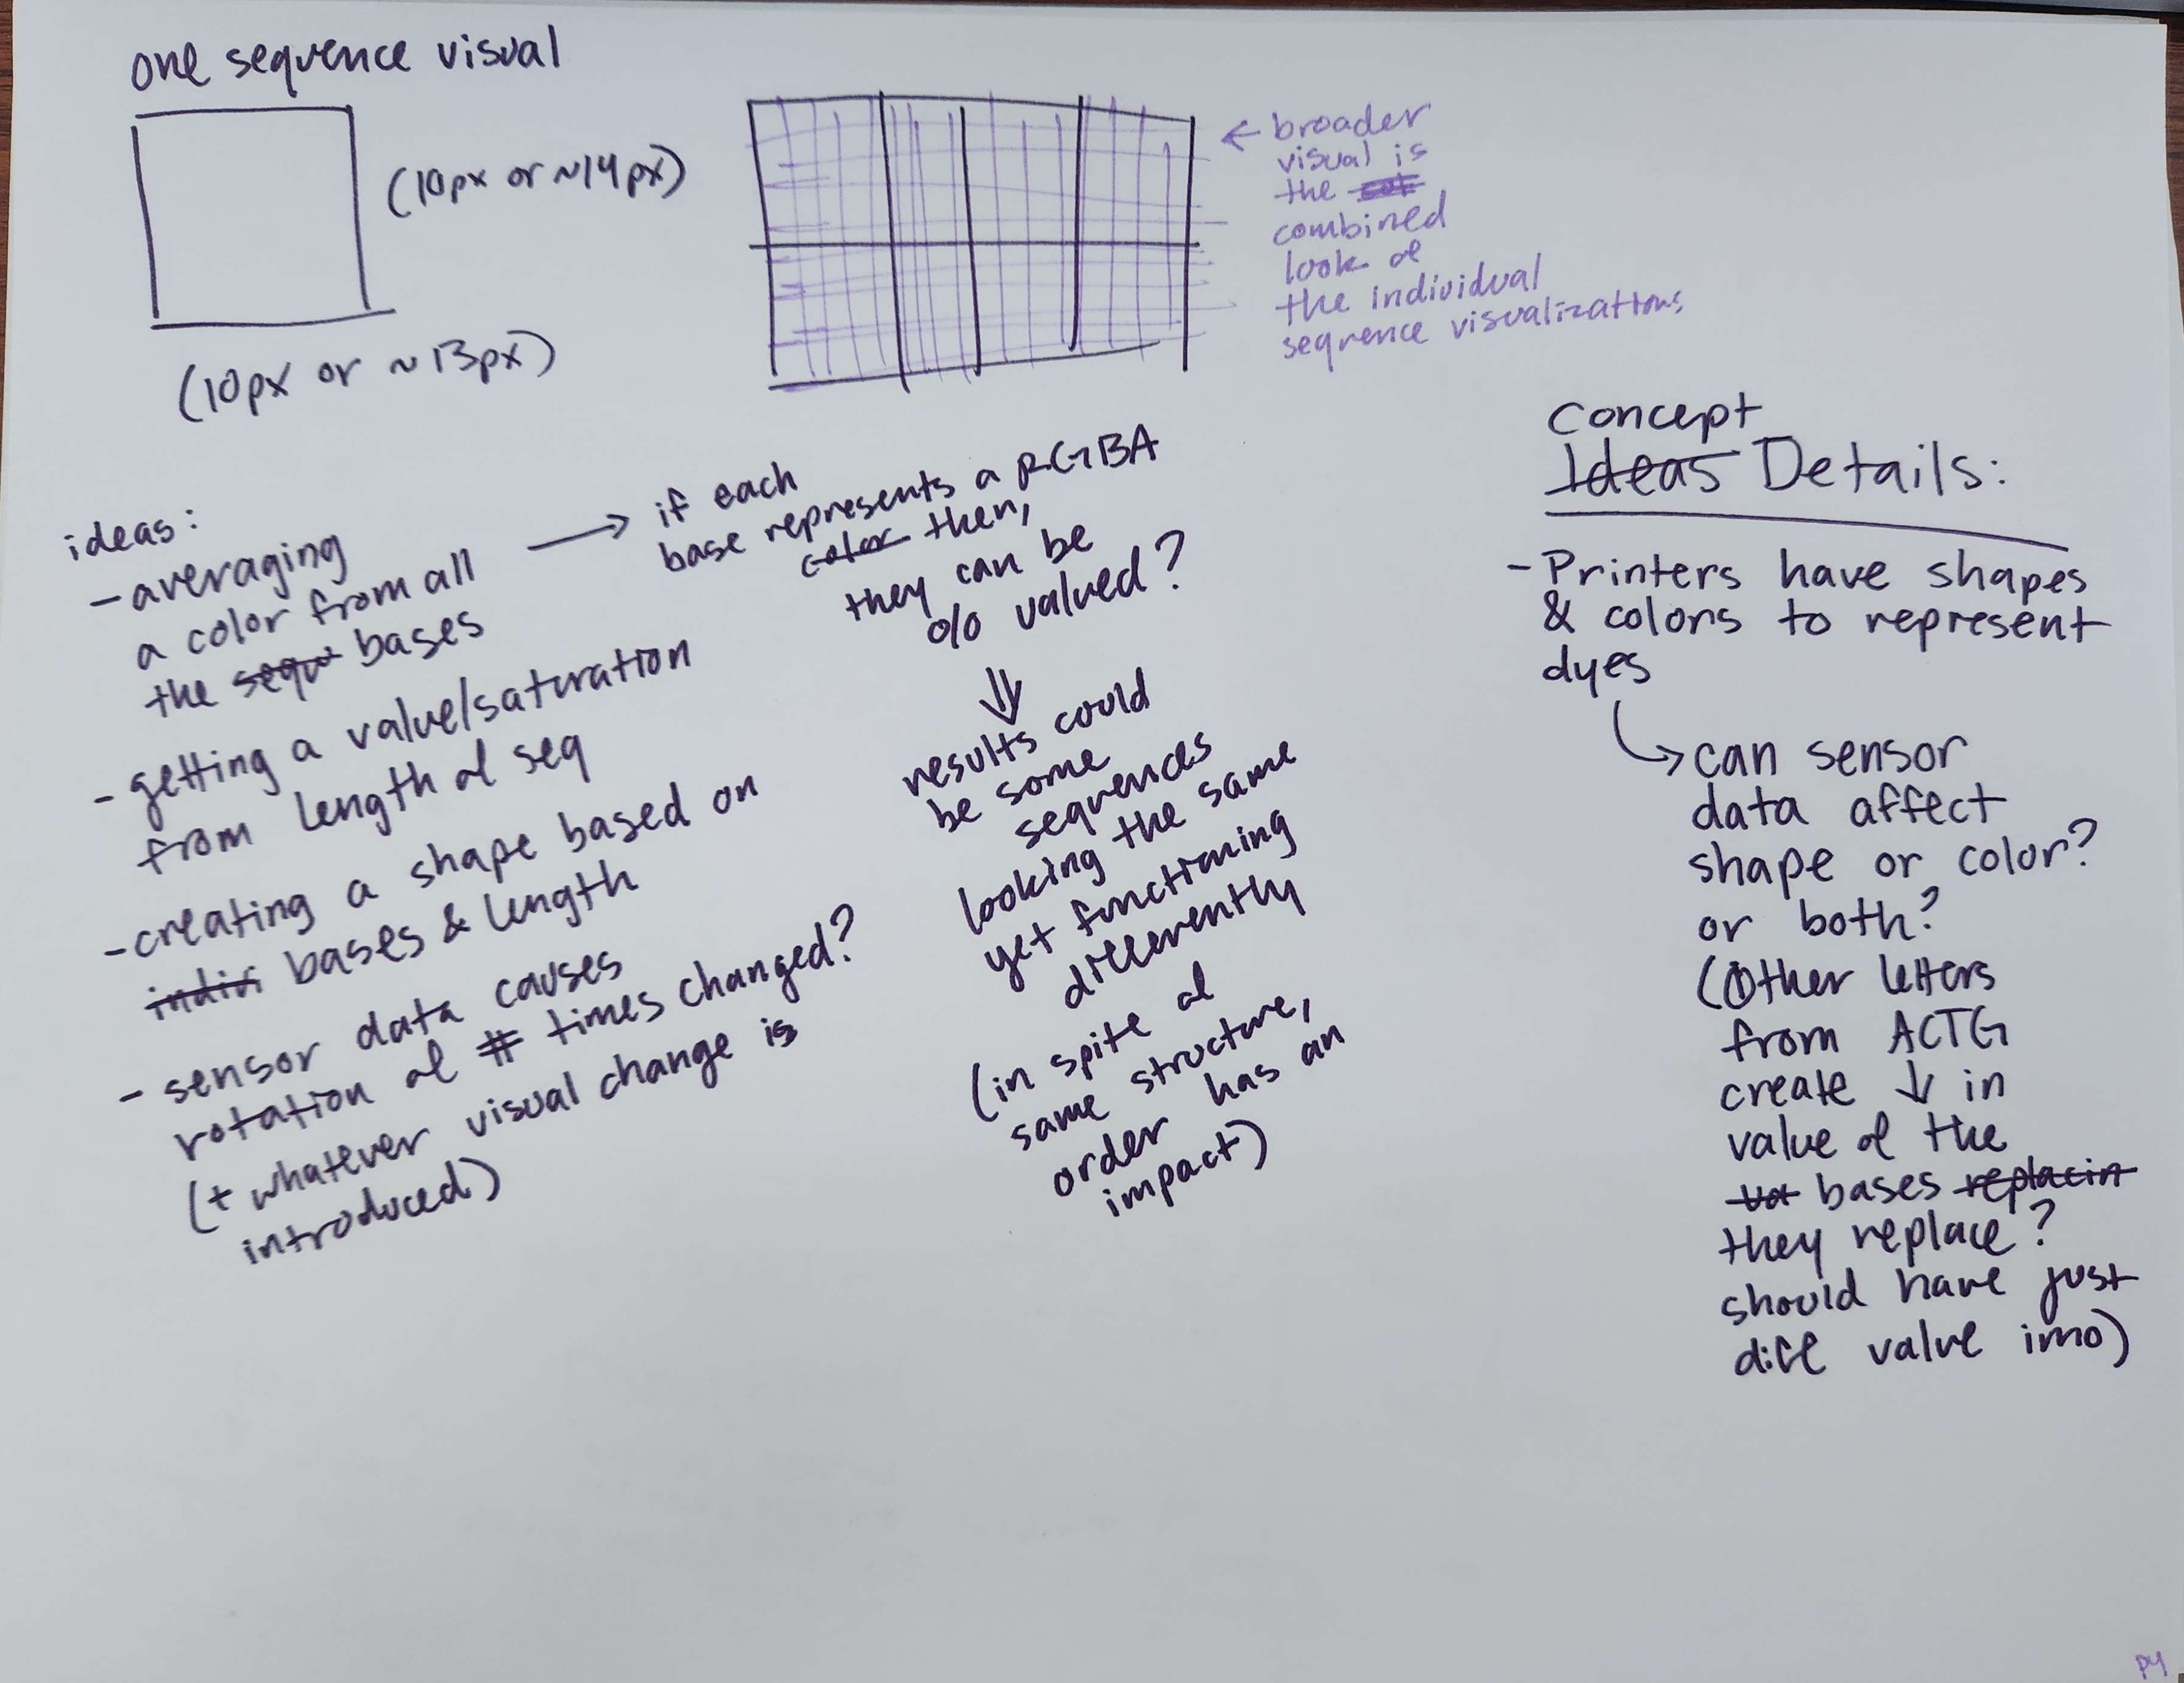 one sequence visual
(10px or ~14px)
(10px or ~13px)
← broader
visual is
the
combined
look of
the individual
sequence visualizations
ideas:
- averaging
a color from all
the sequ bases
- getting a value/saturation
from length of seq
- creating a shape based on
indivi bases & length
- sensor data causes
rotation of # times changed?
(+ whatever visual change is
introduced)
→ if each
base represents a RGBA
color then,
they can be
% valued?
⇓
results could
be some
sequences
looking the same
yet functioning
differently
(in spite of
same structure,
order has an
impact)
Concept
Ideas Details:
- Printers have shapes
& colors to represent
dyes
↳ can sensor
data affect
shape or color?
or both?
(Other letters
from ACTG
create ↓ in
value of the
bases replacin
they replace?
should have just
diff value imo)
P4